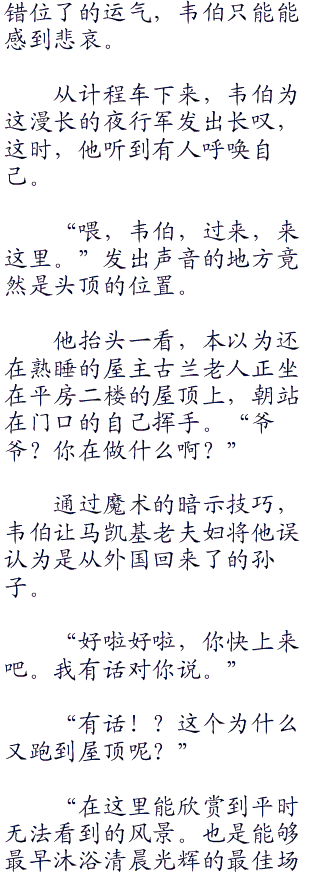 错位了的运气，韦伯只能能
感到悲哀。
从计程车下来，韦伯为
这漫长的夜行军发出长叹，
这时，他听到有人呼唤自
己。
“喂，韦伯，过来，来
这里。”发出声音的地方竟
然是头顶的位置。
他抬头一看，本以为还
在熟睡的屋主古兰老人正坐
在平房二楼的屋顶上，朝站
在门口的自己挥手。“爷
爷？你在做什么啊？”
通过魔术的暗示技巧，
韦伯让马凯基老夫妇将他误
认为是从外国回来了的孙
子。
“好啦好啦，你快上来
吧。我有话对你说。”
“有话！？这个为什么
又跑到屋顶呢？”
“在这里能欣赏到平时
无法看到的风景。也是能够
最早沐浴清晨光辉的最佳场